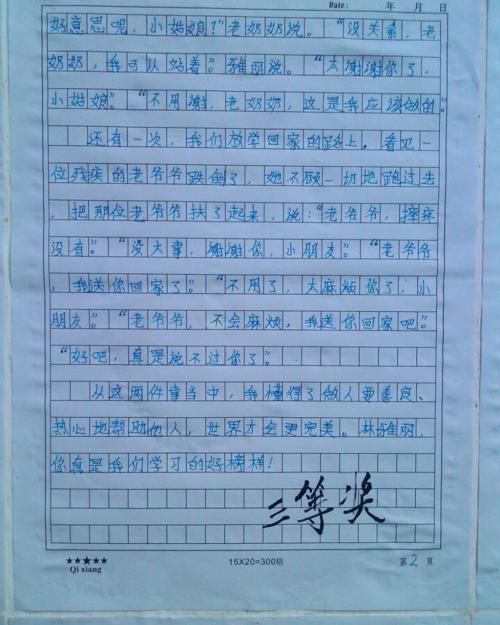 Date: 年 月 日
好意思呢，小姑娘？”老奶奶说。“没关系，老
奶奶，我可以站着”。雅丽说。“太谢谢你了，
小姑娘”。“不用谢，老奶奶，这是我应该做的”
还有一次，我们放学回家的路上。看见一
位残疾的老爷爷跌倒了，她不顾一切地跑过去
，把那位老爷爷扶了起来，说：“老爷爷，摔疼
没有”。“没大事，谢谢你，小朋友”。“老爷爷
，我送你回家了”。“不用了，太麻烦你了，小
朋友”。“老爷爷，不会麻烦，我送你回家吧”。
“好吧，真是说不过你了”。
从这两件事当中，我懂得了做人要善良、
热心地帮助他人，世界才会更完美。林雅丽，
你真是我们学习的好榜样！
三等奖
★★★★★ 15X20=300格 第2页
Qi xiang